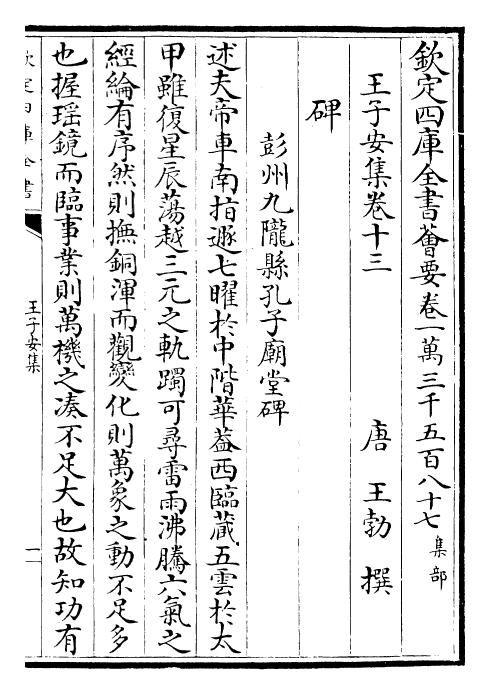 欽定四庫全書薈要卷一萬三千五百八十七集部
王子安集卷十三
唐王勃撰
碑
彭州九隴縣孔子廟堂碑
述夫帝車南指遯七曜於中階華葢西臨藏五雲於太
甲雖復星辰蕩越三元之軌躅可尋雷雨沸騰六氣之
經綸有序然則撫銅渾而觀變化則萬象之動不足多
也握瑶鏡而臨事業則萬機之凑不足大也故知功有
欽定四庫全書
王子安集
一